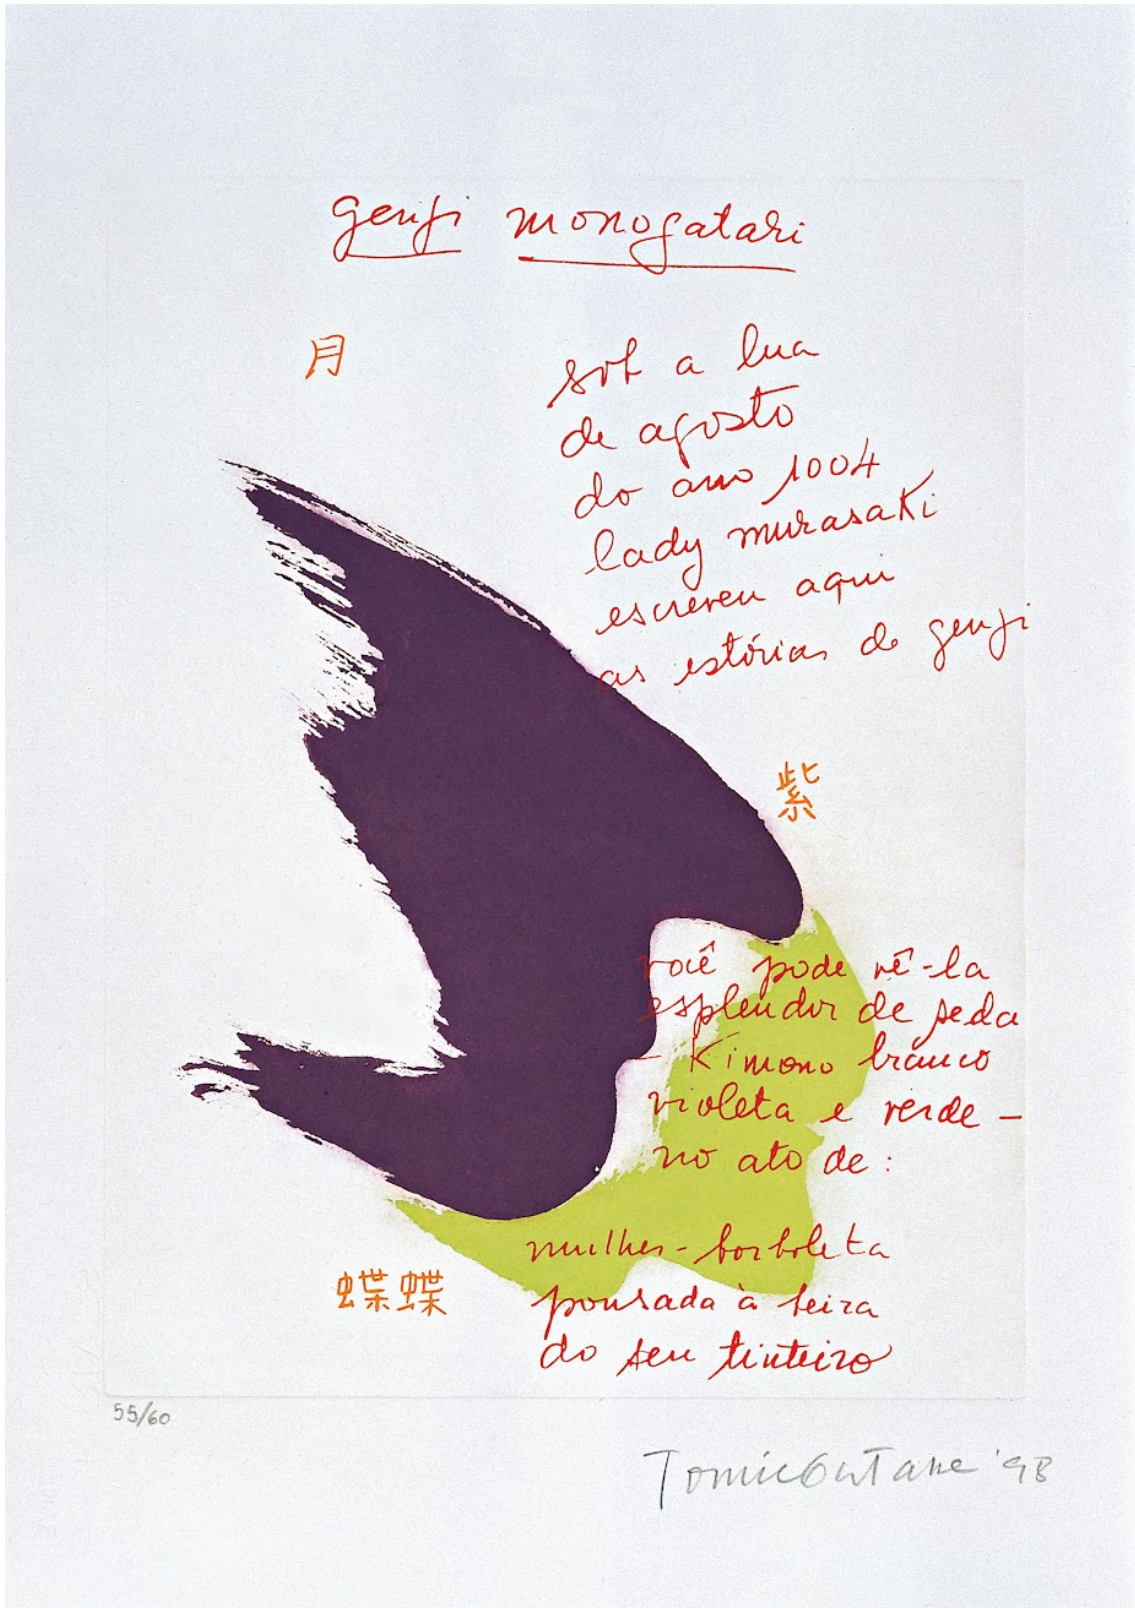 genji monogatari
月
sob a lua
de agosto
do ano 1004
lady murasaki
escreveu aqui
as estórias de genji
紫
você pode vê-la
esplendor de seda
– kimono branco
violeta e verde –
no ato de:
mulher-borboleta
pousada à beira
do seu tinteiro
蝶蝶
55/60
Tomie Ohtake '98